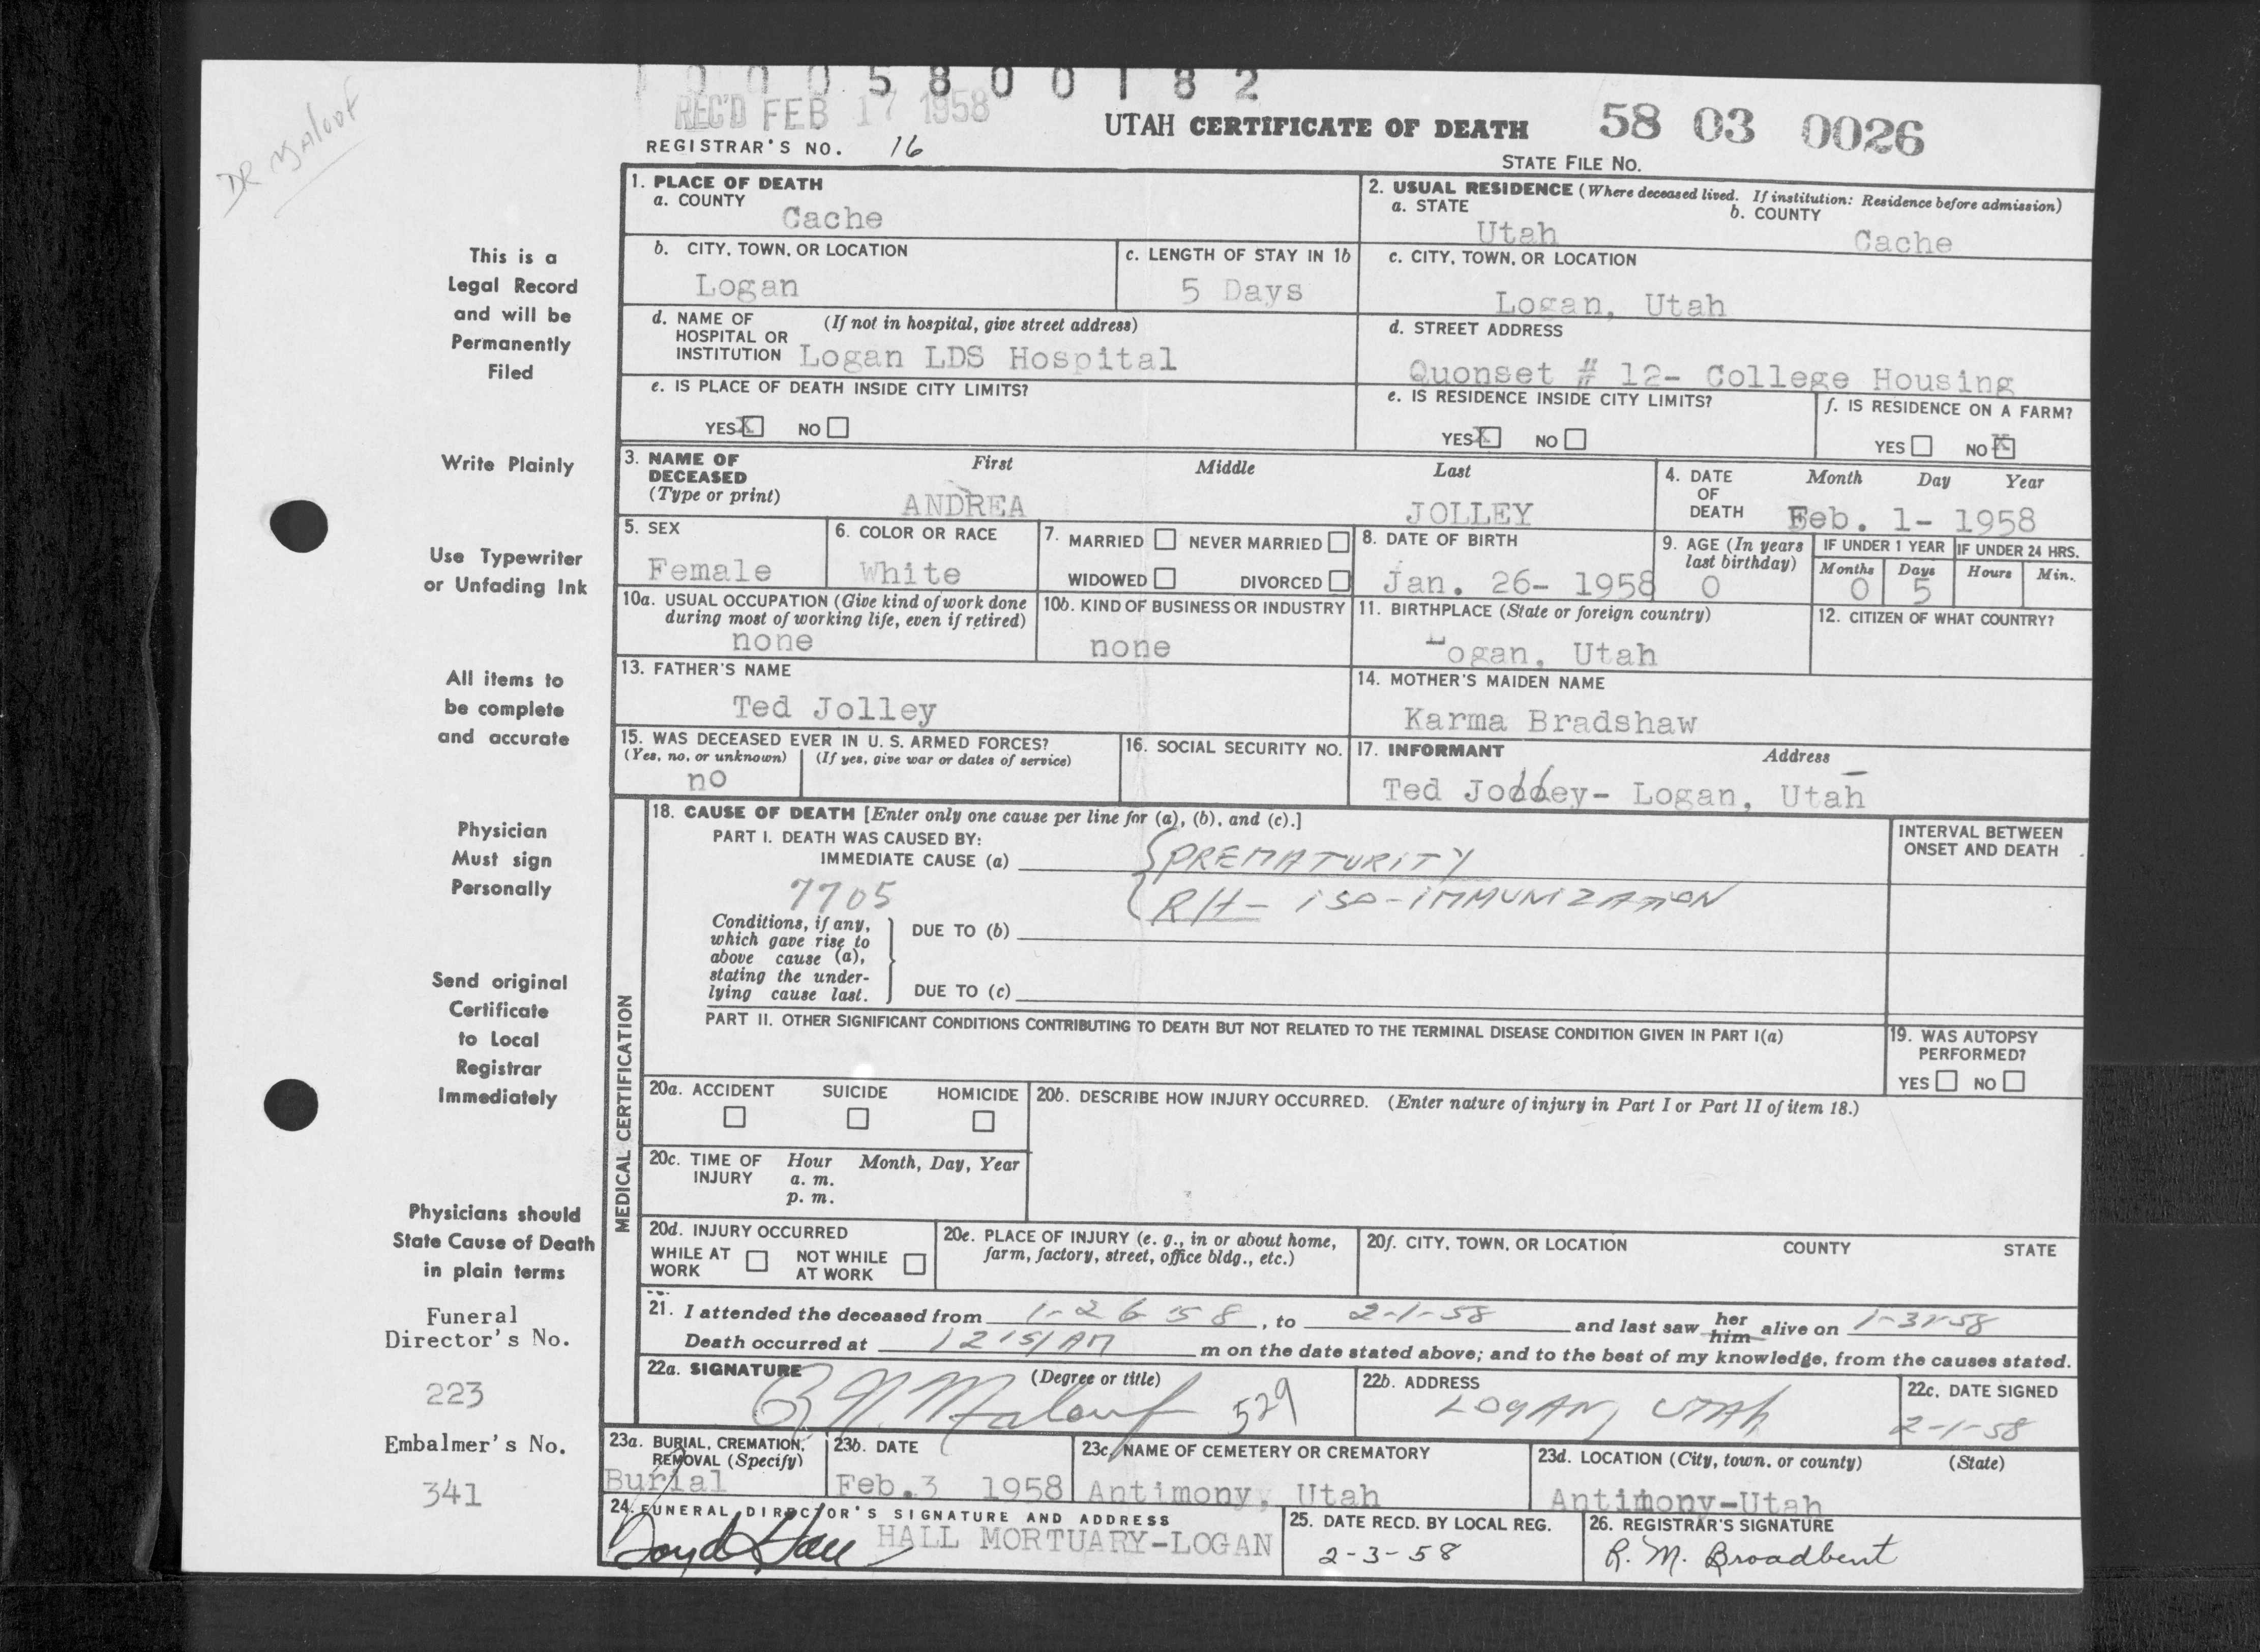 1 0 0 0 5 8 0 0 1 8 2
REC'D FEB 17 1958
UTAH CERTIFICATE OF DEATH
58 03 0026
REGISTRAR'S NO. 16
STATE FILE NO.
DR Malouf
This is a
Legal Record
and will be
Permanently
Filed
Write Plainly
Use Typewriter
or Unfading Ink
All items to
be complete
and accurate
Physician
Must sign
Personally
Send original
Certificate
to Local
Registrar
Immediately
Physicians should
State Cause of Death
in plain terms
Funeral
Director's No.
223
Embalmer's No.
341
1. PLACE OF DEATH
a. COUNTY
Cache
2. USUAL RESIDENCE (Where deceased lived. If institution: Residence before admission)
a. STATE
Utah
b. COUNTY
Cache
b. CITY, TOWN, OR LOCATION
Logan
c. LENGTH OF STAY IN 1b
5 Days
c. CITY, TOWN, OR LOCATION
Logan, Utah
d. NAME OF (If not in hospital, give street address)
HOSPITAL OR
INSTITUTION Logan LDS Hospital
d. STREET ADDRESS
Quonset # 12- College Housing
e. IS PLACE OF DEATH INSIDE CITY LIMITS?
YES X NO
e. IS RESIDENCE INSIDE CITY LIMITS?
YES X NO
f. IS RESIDENCE ON A FARM?
YES NO X
3. NAME OF
DECEASED
(Type or print)
First Middle Last
ANDREA JOLLEY
4. DATE
OF
DEATH
Month Day Year
Feb. 1- 1958
5. SEX
Female
6. COLOR OR RACE
White
7. MARRIED NEVER MARRIED
WIDOWED DIVORCED
8. DATE OF BIRTH
Jan. 26- 1958
9. AGE (In years
last birthday)
0
IF UNDER 1 YEAR
Months Days
0 5
IF UNDER 24 HRS.
Hours Min.
10a. USUAL OCCUPATION (Give kind of work done
during most of working life, even if retired)
none
10b. KIND OF BUSINESS OR INDUSTRY
none
11. BIRTHPLACE (State or foreign country)
Logan, Utah
12. CITIZEN OF WHAT COUNTRY?
13. FATHER'S NAME
Ted Jolley
14. MOTHER'S MAIDEN NAME
Karma Bradshaw
15. WAS DECEASED EVER IN U. S. ARMED FORCES?
(Yes, no, or unknown) (If yes, give war or dates of service)
no
16. SOCIAL SECURITY NO.
17. INFORMANT Address
Ted Jolley- Logan, Utah
MEDICAL CERTIFICATION
18. CAUSE OF DEATH [Enter only one cause per line for (a), (b), and (c).]
PART I. DEATH WAS CAUSED BY:
IMMEDIATE CAUSE (a) PREMATURITY
7705 RH- ISO-IMMUNIZATION
Conditions, if any,
which gave rise to
above cause (a),
stating the under-
lying cause last.
DUE TO (b)
DUE TO (c)
INTERVAL BETWEEN
ONSET AND DEATH
PART II. OTHER SIGNIFICANT CONDITIONS CONTRIBUTING TO DEATH BUT NOT RELATED TO THE TERMINAL DISEASE CONDITION GIVEN IN PART I(a)
19. WAS AUTOPSY
PERFORMED?
YES NO
20a. ACCIDENT SUICIDE HOMICIDE
20b. DESCRIBE HOW INJURY OCCURRED. (Enter nature of injury in Part I or Part II of item 18.)
20c. TIME OF Hour Month, Day, Year
INJURY a. m.
p. m.
20d. INJURY OCCURRED
WHILE AT NOT WHILE
WORK AT WORK
20e. PLACE OF INJURY (e. g., in or about home,
farm, factory, street, office bldg., etc.)
20f. CITY, TOWN, OR LOCATION COUNTY STATE
21. I attended the deceased from 1-26 58, to 2-1-58 and last saw her him alive on 1-31-58
Death occurred at 1215 AM m on the date stated above; and to the best of my knowledge, from the causes stated.
22a. SIGNATURE (Degree or title)
Malouf 529
22b. ADDRESS
LOGAN, UTAH
22c. DATE SIGNED
2-1-58
23a. BURIAL, CREMATION,
REMOVAL (Specify)
Burial
23b. DATE
Feb.3 1958
23c. NAME OF CEMETERY OR CREMATORY
Antimony, Utah
23d. LOCATION (City, town, or county) (State)
Antimony-Utah
24. FUNERAL DIRECTOR'S SIGNATURE AND ADDRESS
Loyd Hall HALL MORTUARY-LOGAN
25. DATE RECD. BY LOCAL REG.
2-3-58
26. REGISTRAR'S SIGNATURE
R. M. Broadbent